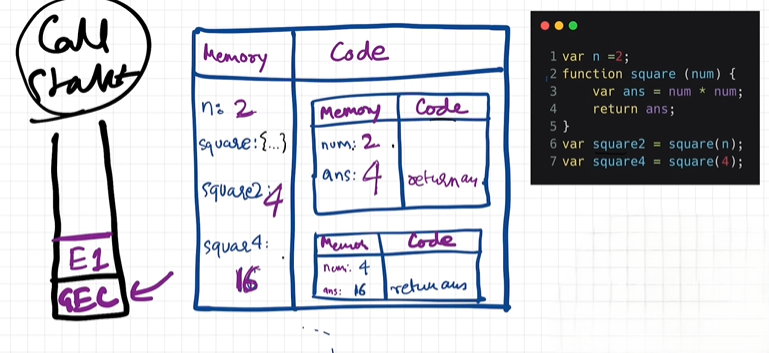 Call
Stack
Memory
Code
n: 2
square:{...}
square2:4
squae4:
16
Memory
Code
num: 2
ans: 4
return an
Memor
Code
num: 4
ans: 16
return ans
E1
GEC
1 var n =2;
2 function square (num) {
3 var ans = num * num;
4 return ans;
5 }
6 var square2 = square(n);
7 var square4 = square(4);